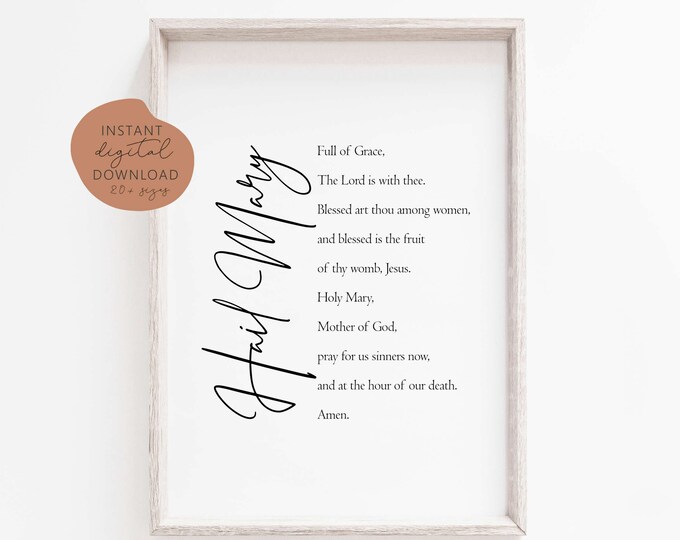 INSTANT
digital
DOWNLOAD
20+ sizes
Hail Mary
Full of Grace,
The Lord is with thee.
Blessed art thou among women,
and blessed is the fruit
of thy womb, Jesus.
Holy Mary,
Mother of God,
pray for us sinners now,
and at the hour of our death.
Amen.